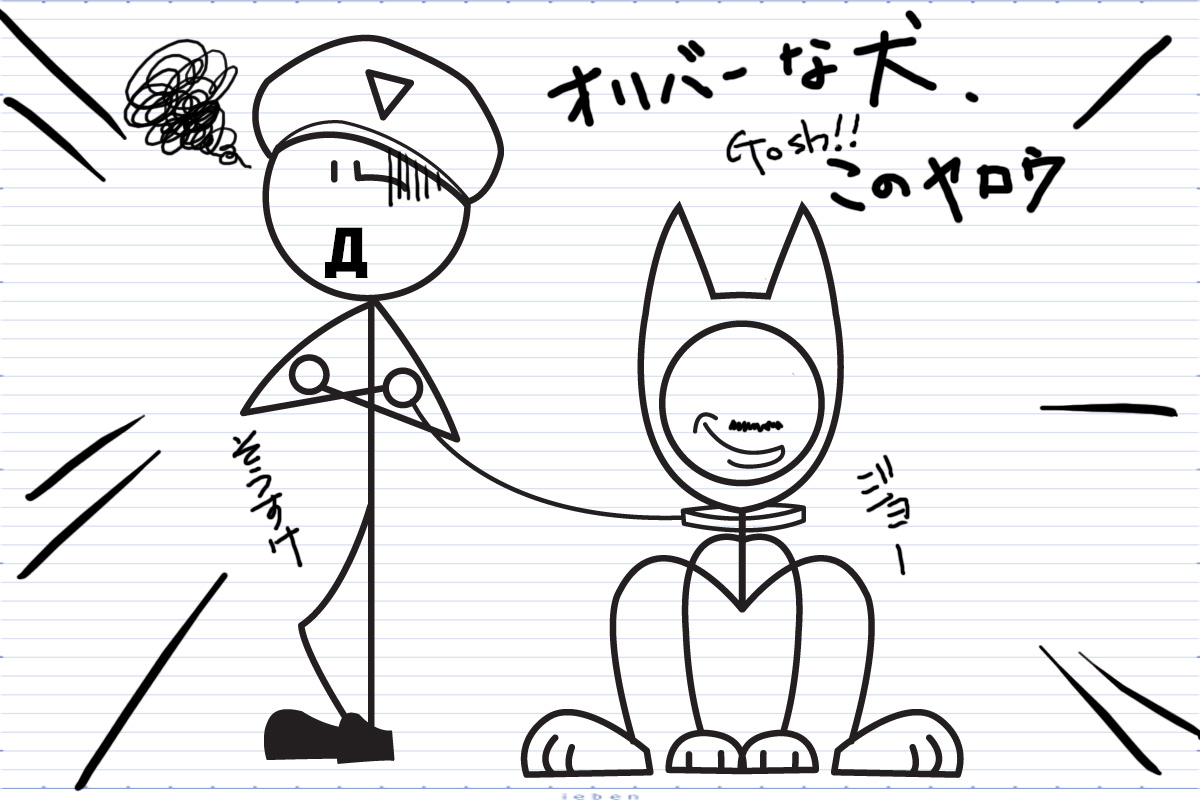 オリバーな犬、
Gosh!!
このヤロウ
Д
そうすけ
ジョー
ieben